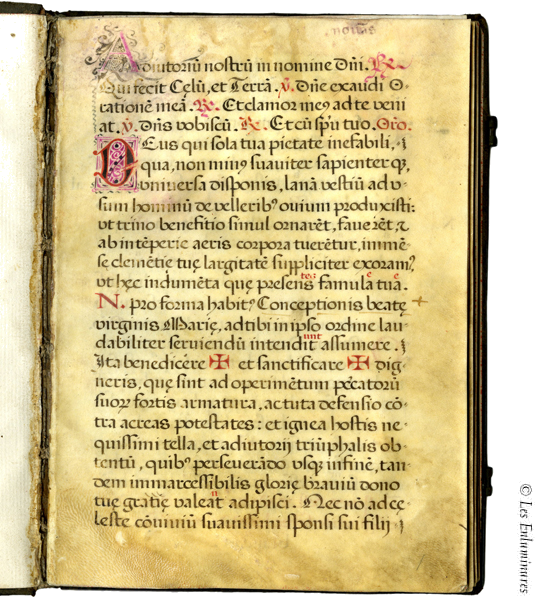 Adiutoriũ nostrũ in nomine Dñi. R.
Qui fecit Celũ, et Terrã. v̇. Dñe exaudi O-
rationẽ meã. R. Et clamor meꝰ ad te veni
at. v̇. Dñs vobiscũ. R. Et cũ spũ tuo. Oro.
Deus qui sola tua pietate inefabili,
qua, non minꝰ suauiter sapienter qʒ,
vniuersa disponis, lanã vestiũ ad v-
sum hominũ de velleribꝰ ouium produxisti:
vt trino benefitio simul ornarẽt, fauerẽt, ꝛ
ab intẽperie aeris corpora tuerẽtur, immẽ-
sę clemẽtię tuę largitatẽ suppliciter exoramꝰ,
vt hęc indumẽta quę presens famula tuã.
N. pro forma habitꝰ Conceptionis beatę
virginis Marię, ad tibi in ipso ordine lau-
dabiliter seruiendũ intendit assumere.
Ita benedicere ✠ et sanctificare ✠ dig
neris, quę sint ad operimẽtum peccatorũ
suorꝝ fortis armatura, ac tuta defensio cõ-
tra aereas potestates: et ignea hostis ne
quissimi tella, et adiutorij triũphalis ob-
tentũ, quibꝰ perseuerãdo vsqʒ in finẽ, tan-
dem immarcessibilis glorię brauiũ dono
tuę gratię valeat adipisci. Nec nõ ad cę
leste cõuiuiũ suauissimi sponsi sui filij
© Les Enluminures